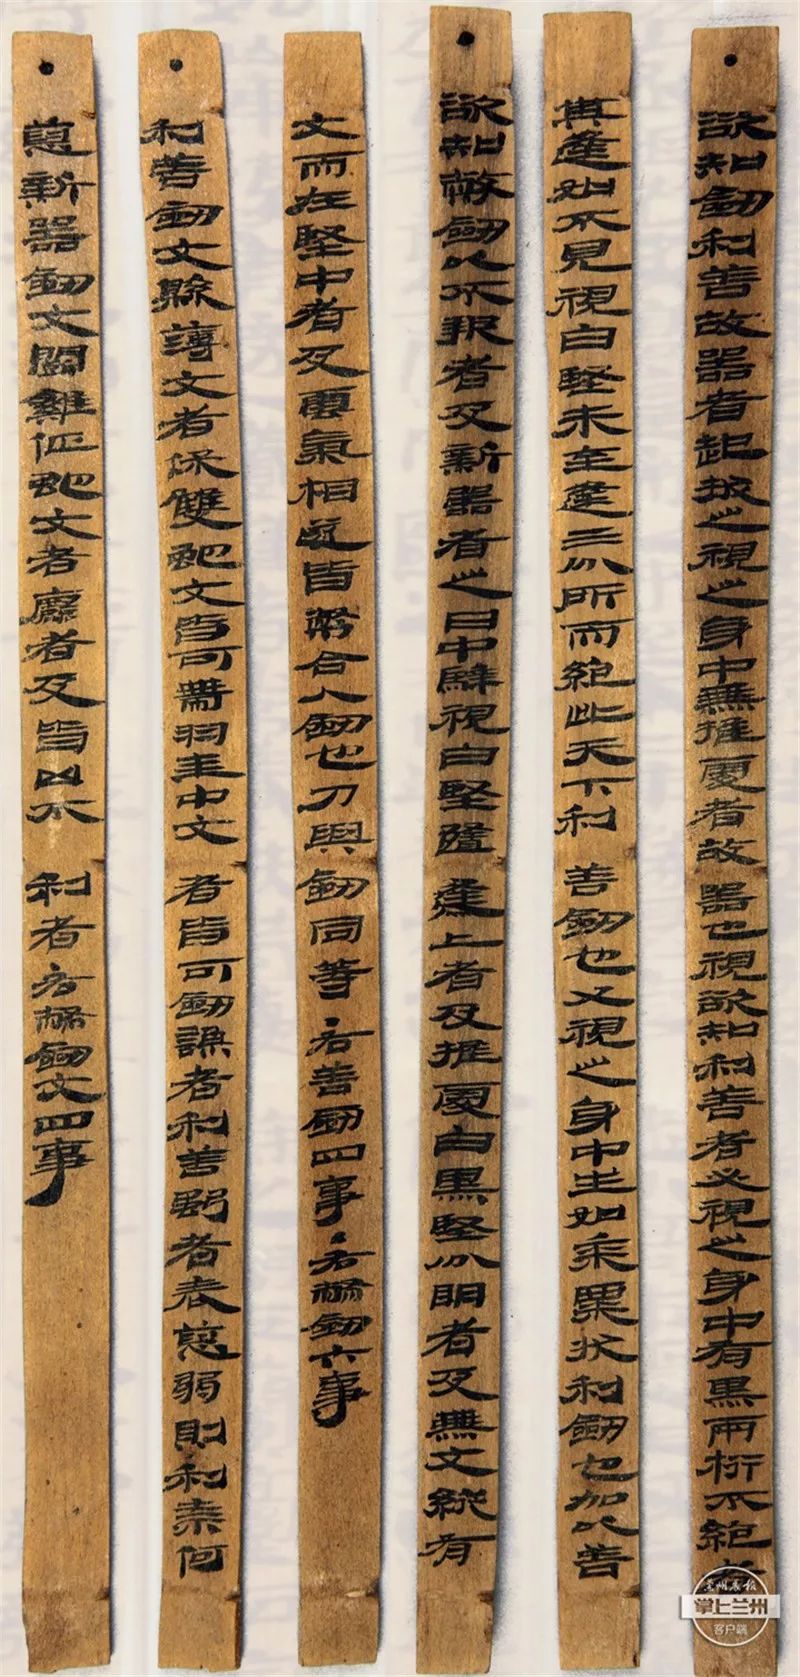 欲知劍利善故器者起拔之視之身中無推處者故器也視欲知利善者必視之身中有黑兩桁不絕者
其逢如不見視白堅未至逢三分所而絕此天下利善劍也又視之身中生如黍粟狀利劍也加以善
欲知幣劍以不報者及新器者之日中騂視白堅隨逢上者及推處白黑堅分明者及無文縱有
文而在堅中者及雲氣相遂皆幣合人劍也刀與劍同等·右善劍四事·右幣劍六事
利善劍文縣薄文者保雙蛇文皆可帶羽圭中文者皆可劍謙者利善強者表惡弱則利奈何
惡新器劍文鬭雞佂蛇文者麤者及皆凶不利者右幣劍文四事
兰州晨报
掌上兰州
客户端